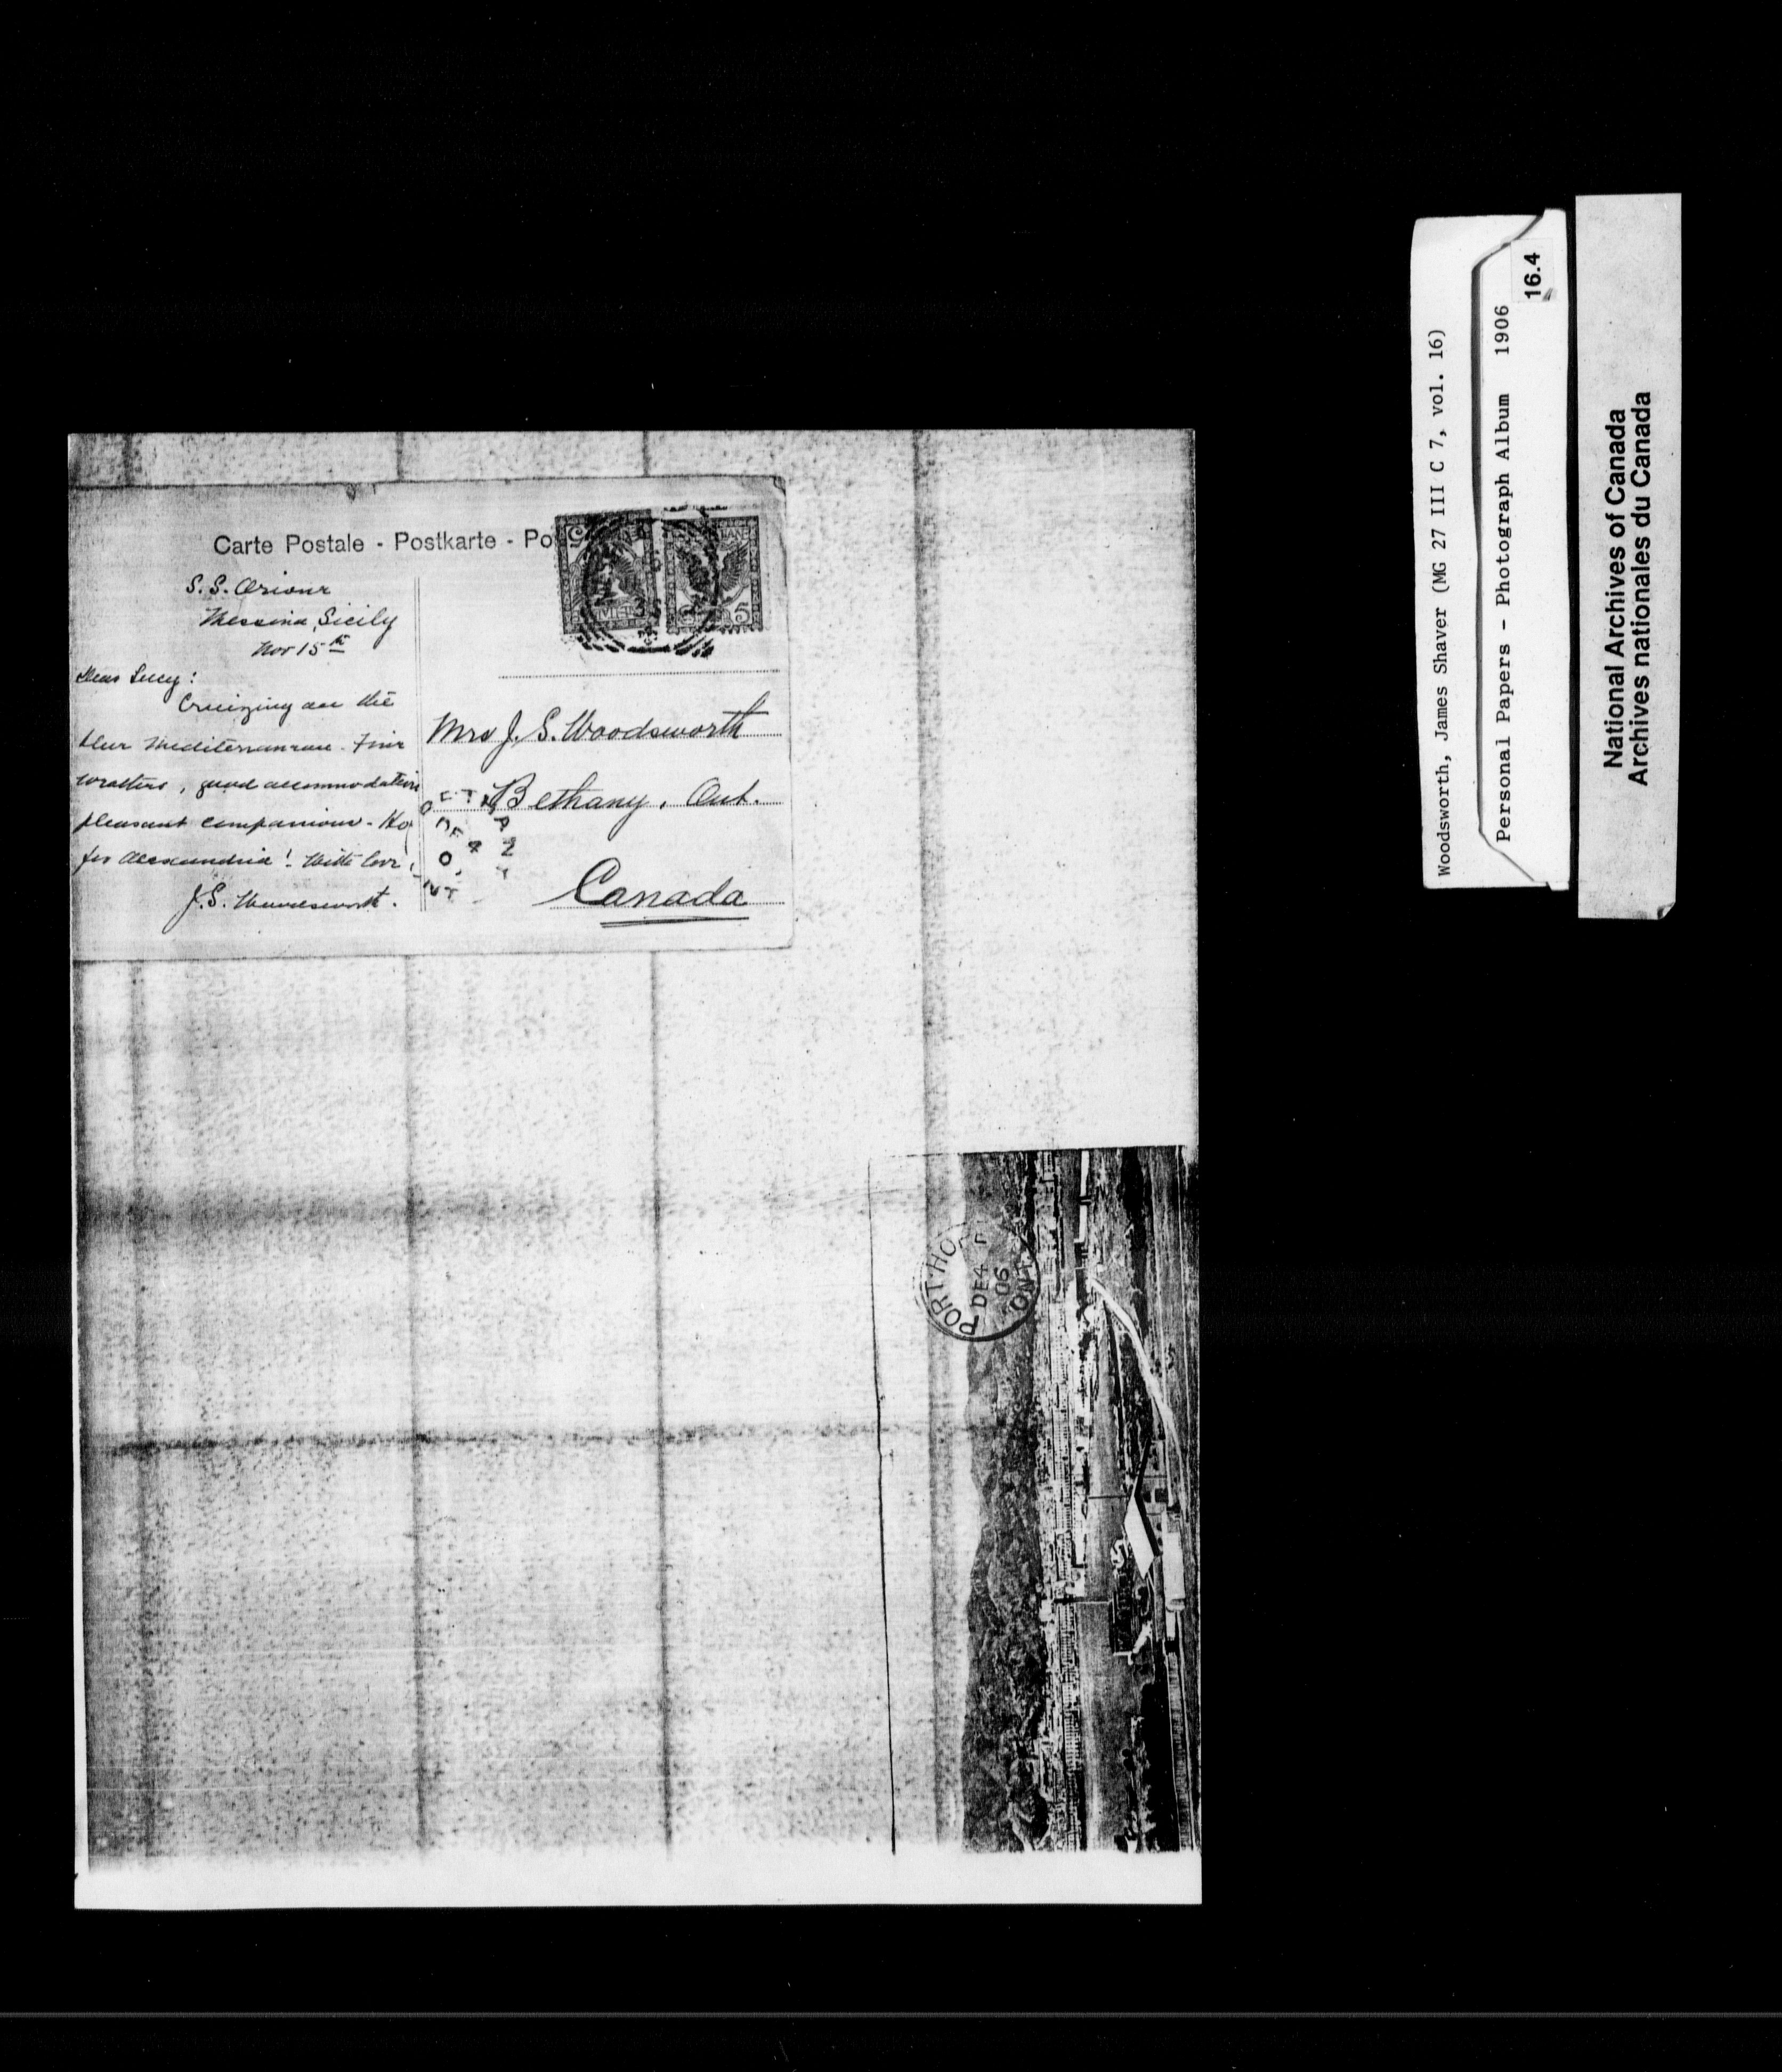 Carte Postale - Postkarte - Po
S.S. Orione
Messina, Sicily
Nov 15th
Dear Lucy:
Cruizing on the
blue Mediterranean. Fine
weather, good accommodation
pleasant companions - Ho
for Alexandria! With love,
J.S. Woodsworth.
5
Mrs J. S. Woodsworth
Bethany, Ont.
Canada
BETHANY
DE 4
ONT
PORT HO
DE 4
06
ONT
Woodsworth, James Shaver (MG 27 III C 7, vol. 16)
Personal Papers - Photograph Album 1906
16.4
National Archives of Canada
Archives nationales du Canada